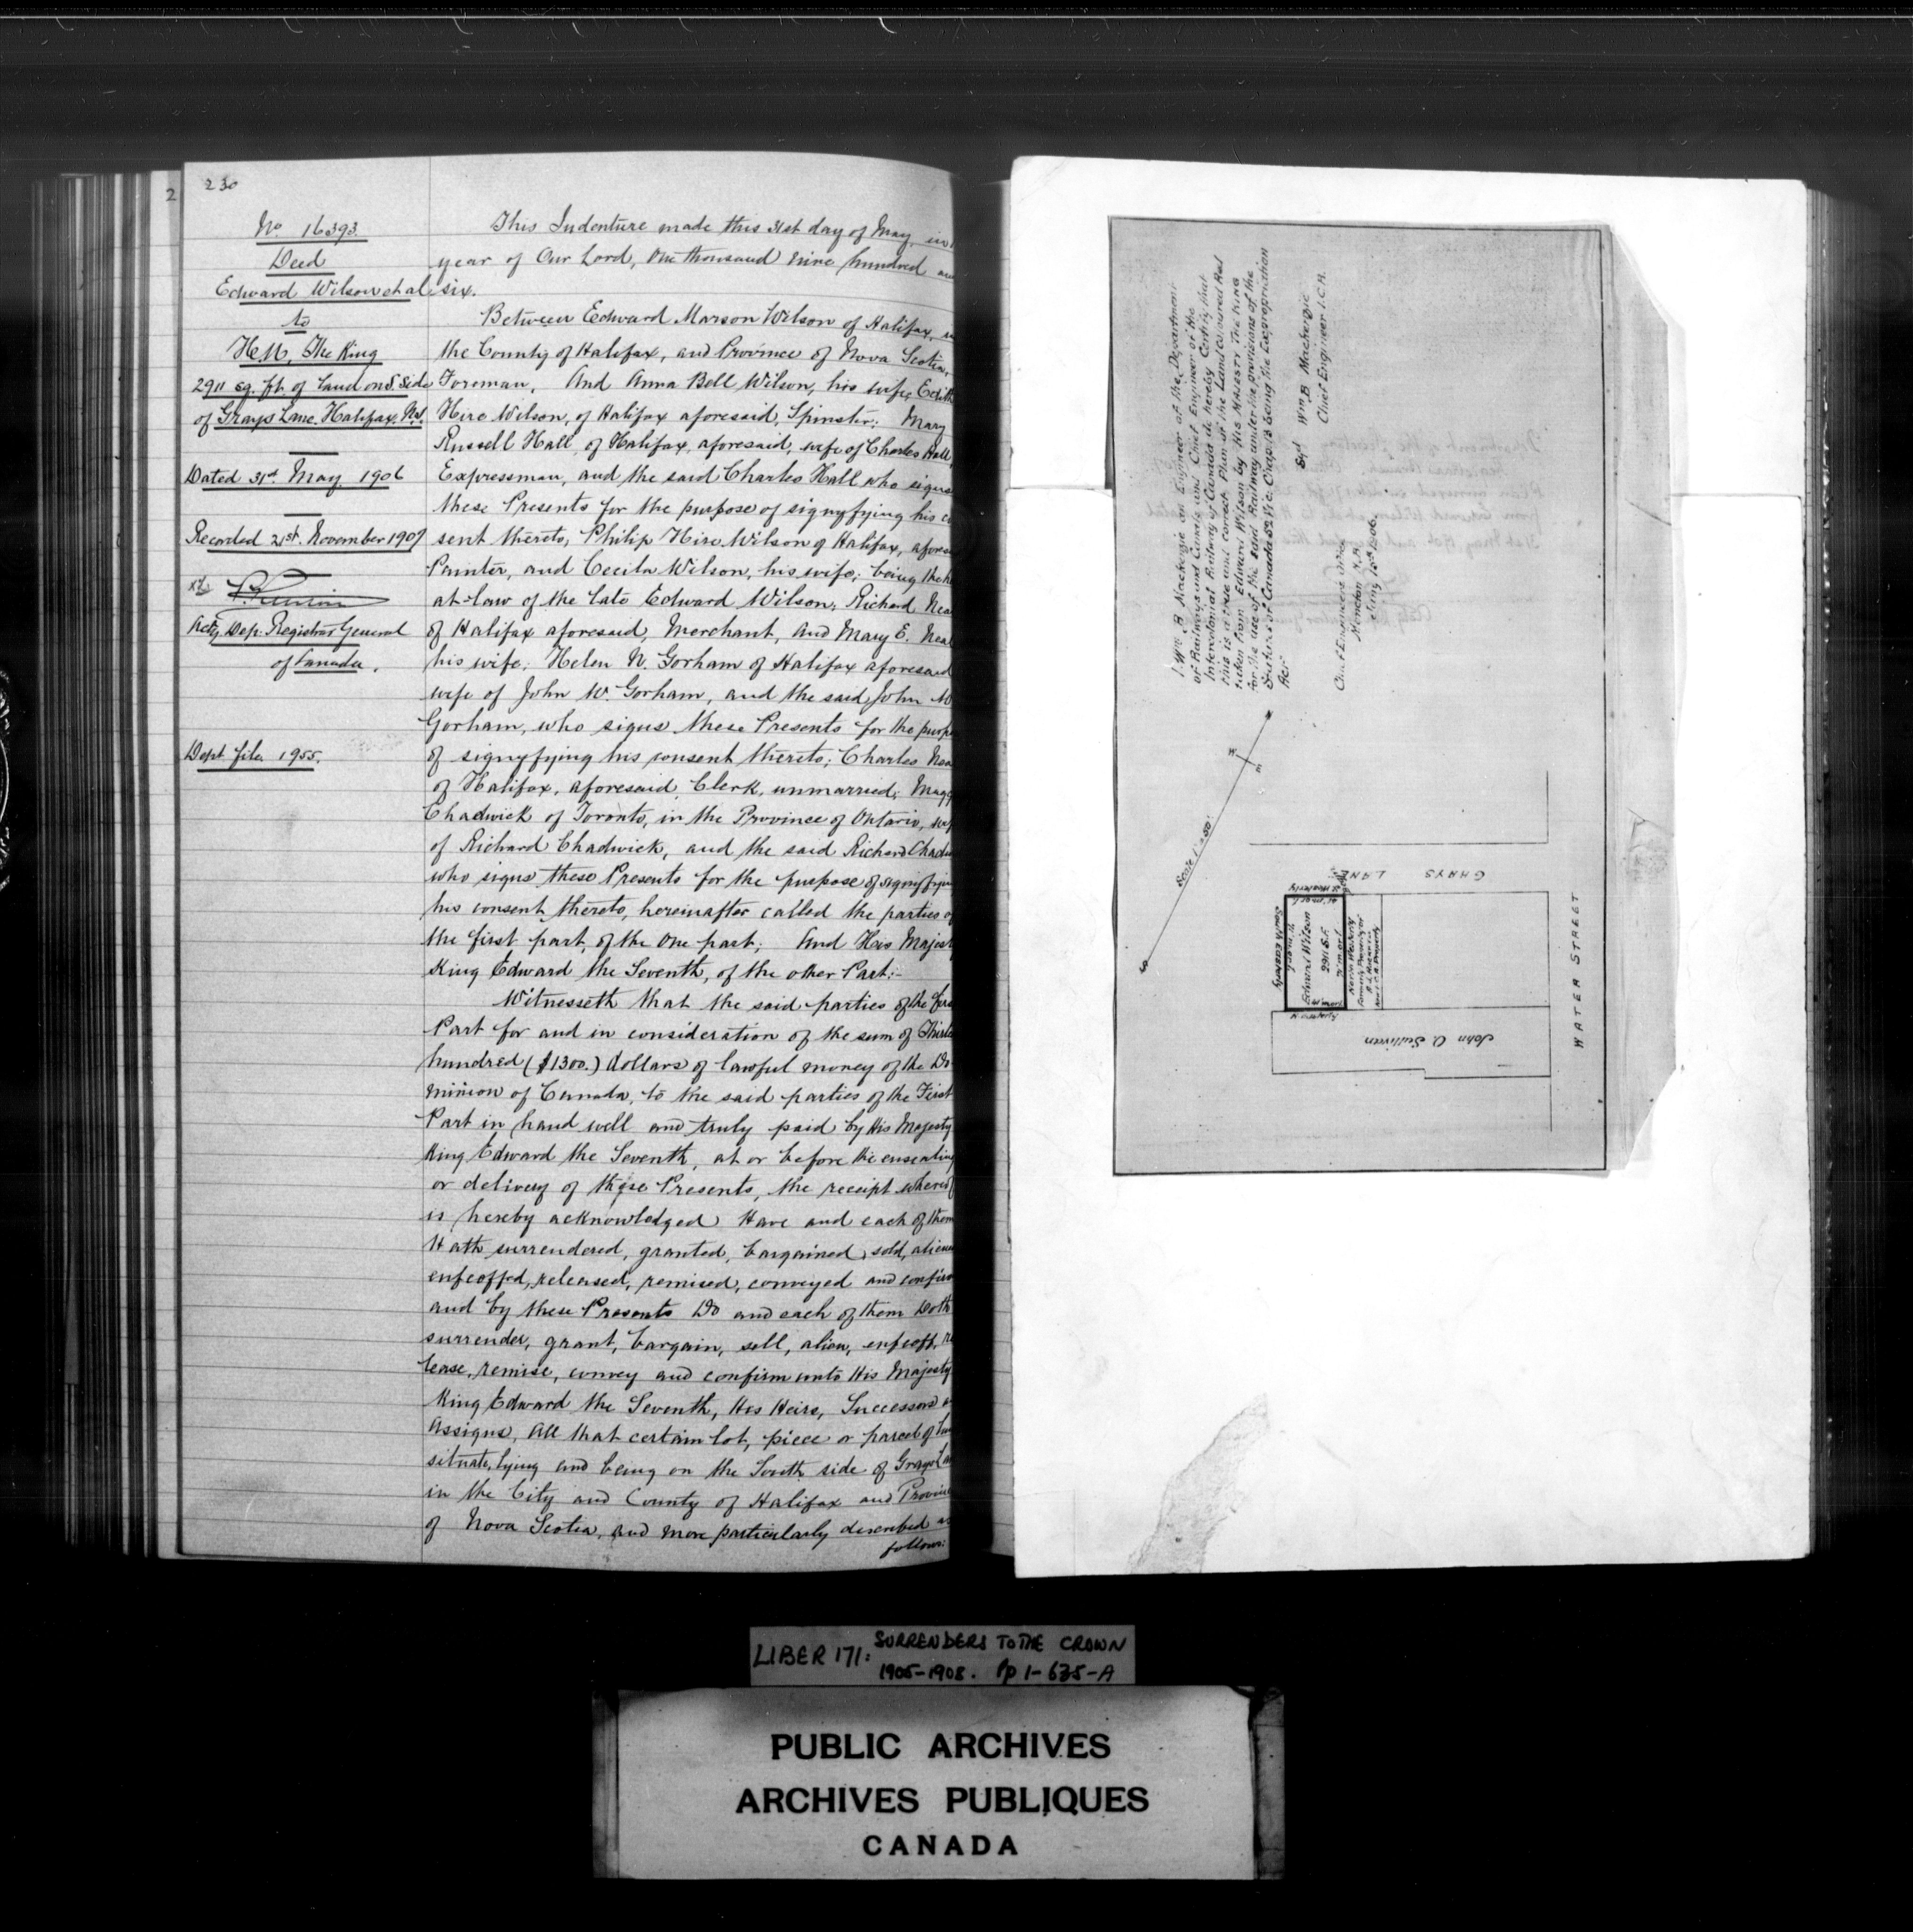 230
2
No 16393.
Deed
Edward Wilson et al
to
H.M. The King
2911 sq. ft. of land on S. Side
of Grays Lane. Halifax. N.S.
Dated 31st May. 1906
Recorded 21st. November 1907
Actg Dep. Registrar General
of Canada.
Dept. file. 1955.
This Indenture made this 31st day of May, in
year of Our Lord, One thousand nine hundred and
six.
Between Edward Marson Wilson of Halifax, in
the County of Halifax, and Province of Nova Scotia,
Foreman, And Anna Bell Wilson, his wife, Edith
Hire Wilson, of Halifax aforesaid, Spinster; Mary
Russell Hall, of Halifax, aforesaid, wife of Charles Hall,
Expressman, and the said Charles Hall who signs
these Presents for the purpose of signyfying his con
sent thereto, Philip Hire Wilson of Halifax, afores
Painter, and Cecila Wilson, his wife; being the he
at-law of the late Edward Wilson; Richard Nea
of Halifax aforesaid, Merchant, and Mary E. Neal
his wife; Helen N. Gorham of Halifax aforesaid
wife of John W. Gorham, and the said John W
Gorham, who signs these Presents for the purp
of signyfying his consent thereto; Charles Nea
of Halifax, aforesaid, Clerk, unmarried; Magg
Chadwick of Toronto, in the Province of Ontario, wif
of Richard Chadwick, and the said Richard Chadw
who signs these Presents for the purpose of signyfyin
his consent thereto, hereinafter called the parties of
the first part, of the One part; And His Majest
King Edward the Seventh, of the other Part:-
Witnesseth that the said parties of the First
Part for and in consideration of the sum of Thirte
hundred ($1300.) dollars of lawful money of the Do-
minion of Canada, to the said parties of the First
Part in hand well and truly paid by His Majesty
King Edward the Seventh, at or before the ensealing
or delivery of these Presents, the receipt whereof
is hereby acknowledged Have and each of them
Hath surrendered, granted, bargained, sold, aliene
enfeoffed, released, remised, conveyed and confirm
and by these Presents Do and each of them Doth
surrender, grant, bargain, sell, alien, enfeoff, re
lease, remise, convey and confirm unto His Majesty
King Edward the Seventh, His Heirs, Successors a
Assigns, All that certain lot, piece or parcel of lan
situate, lying and being on the South side of Grays La
in the City and County of Halifax and Provinc
of Nova Scotia, and more particularly described as
follows:
I Wm B Mackenzie an Engineer of the Department
of Railways and Canals and Chief Engineer of the
Intercolonial Railway of Canada do hereby Certify that
this is a true and correct Plan of the Land Coloured Red
taken from Edward Wilson by His MAJESTY THE KING
for the use of the said Railway under the provisions of the
Statutes of Canada 52 Vic. Chap. 13 being the Expropriation
Act
Sgd Wm B Mackenzie
Chief Engineer I.C.R.
Chief Engineers Office
Moncton N.B.
Scale 1" = 50'
N
E
S
GRAYS LANE
WATER STREET
South Easterly
Edward Wilson
2911 S.F.
John O Sullivan
LIBER 171: SURRENDERS TO THE CROWN
1905-1908. Pp 1-635-A
PUBLIC ARCHIVES
ARCHIVES PUBLIQUES
CANADA